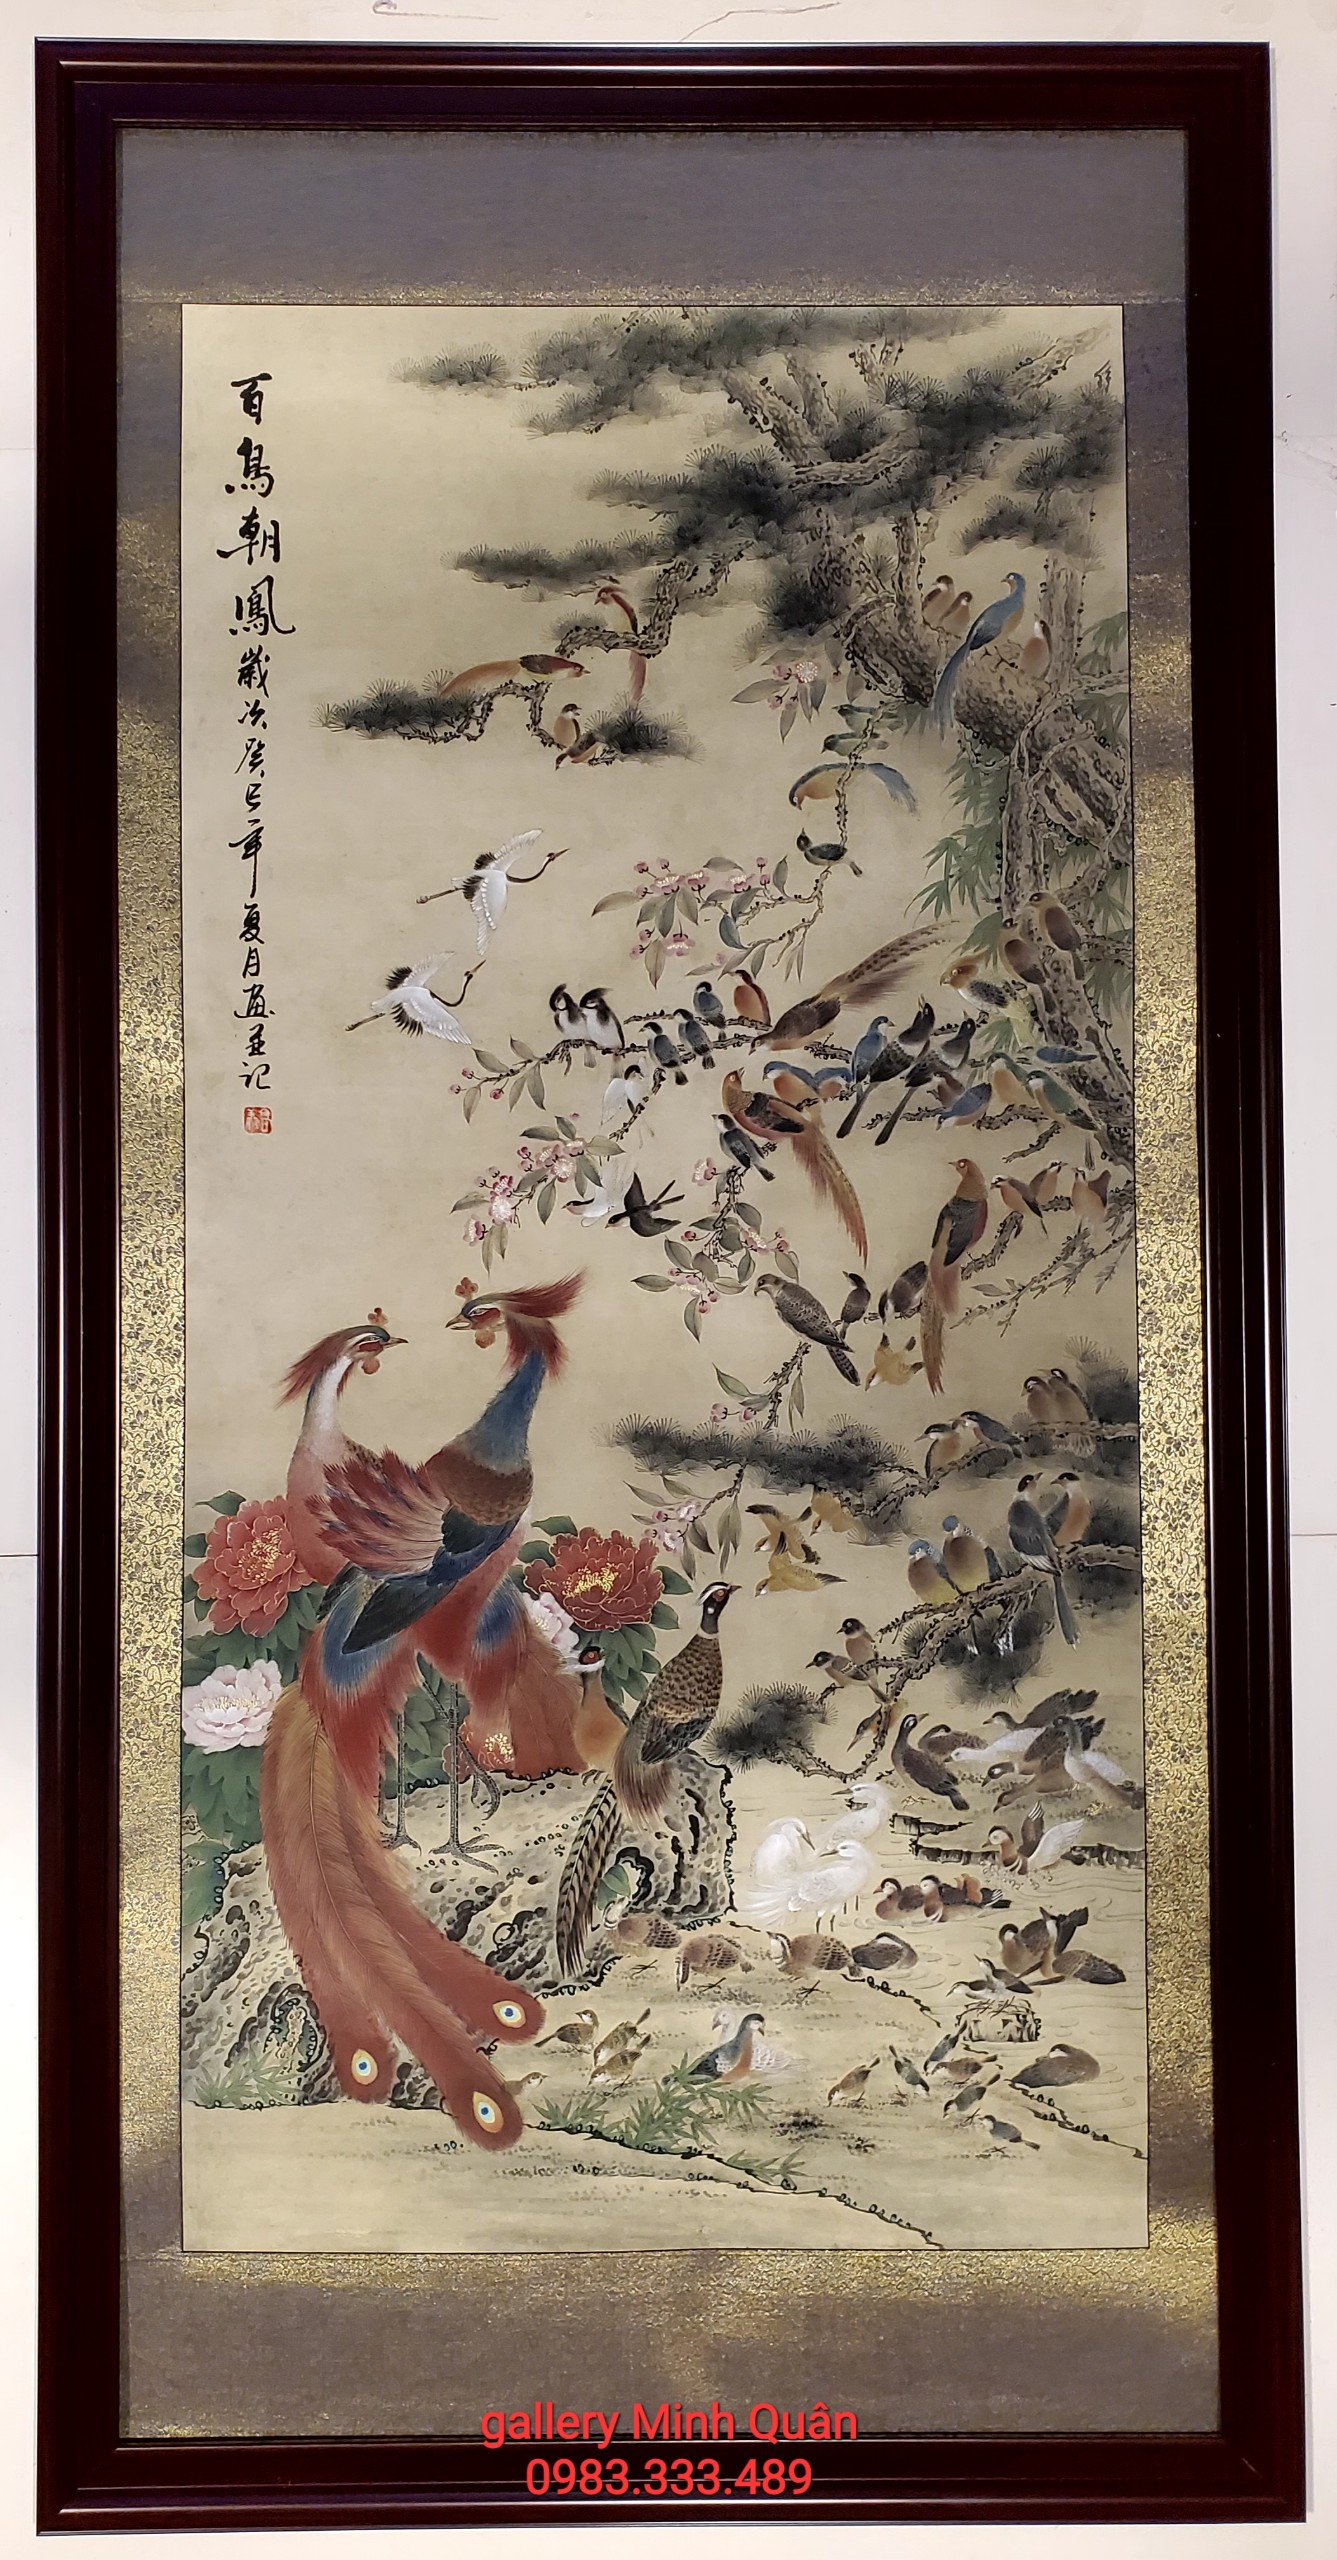 百鳥朝鳳歲次癸巳年夏月画並记
gallery Minh Quân
0983.333.489